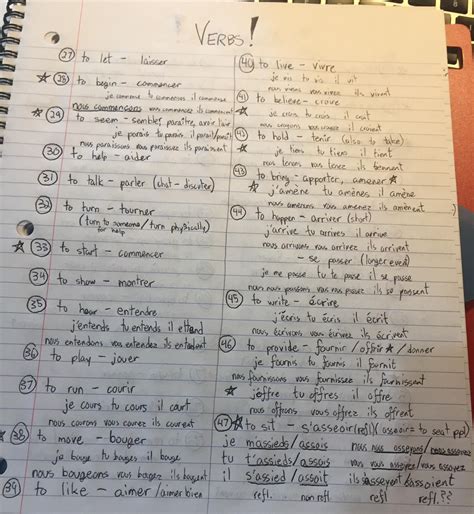 VERBS!
27 to let – laisser
28 to begin – commencer
je commence tu commences il commence
nous commençons vous commencez ils commencent
29 to seem – sembler, paraître, avoir l'air
je parais tu parais il paraît
nous paraissons vous paraissez ils paraissent
30 to help – aider
31 to talk – parler (chat – discuter)
32 to turn – tourner
(turn to someone / turn physically)
for help
33 to start – commencer
34 to show – montrer
35 to hear – entendre
j'entends tu entends il entend
nous entendons vous entendez ils entendent
36 to play – jouer
37 to run – courir
je cours tu cours il court
nous courons vous courez ils courent
38 to move – bouger
je bouge tu bouges il bouge
nous bougeons vous bougez ils bougent
39 to like – aimer / aimer bien
40 to live – vivre
je vis tu vis il vit
nous vivons vous vivez ils vivent
41 to believe – croire
je crois tu crois il croit
nous croyons vous croyez ils croient
42 to hold – tenir (also to take)
je tiens tu tiens il tient
nous tenons vous tenez ils tiennent
43 to bring – apporter, amener
j'amène tu amènes il amène
nous amenons vous amenez ils amènent
44 to happen – arriver (short)
j'arrive tu arrives il arrive
nous arrivons vous arrivez ils arrivent
– se passer (longer event)
je me passe tu te passe il se passe
nous nous passons vous vous passez ils se passent
45 to write – écrire
j'écris tu écris il écrit
nous écrivons vous écrivez ils écrivent
46 to provide – fournir / offrir / donner
je fournis tu fournis il fournit
nous fournissons vous fournissez ils fournissent
j'offre tu offres il offre
nous offrons vous offrez ils offrent
47 to sit – s'asseoir (refl) (asseoir = to seat ppl)
je m'assieds/assois nous nous asseyons/
tu t'assieds/assois vous vous asseyez/
il s'assied/assoit ils s'asseyent/assoient
refl. non refl. refl refl.??